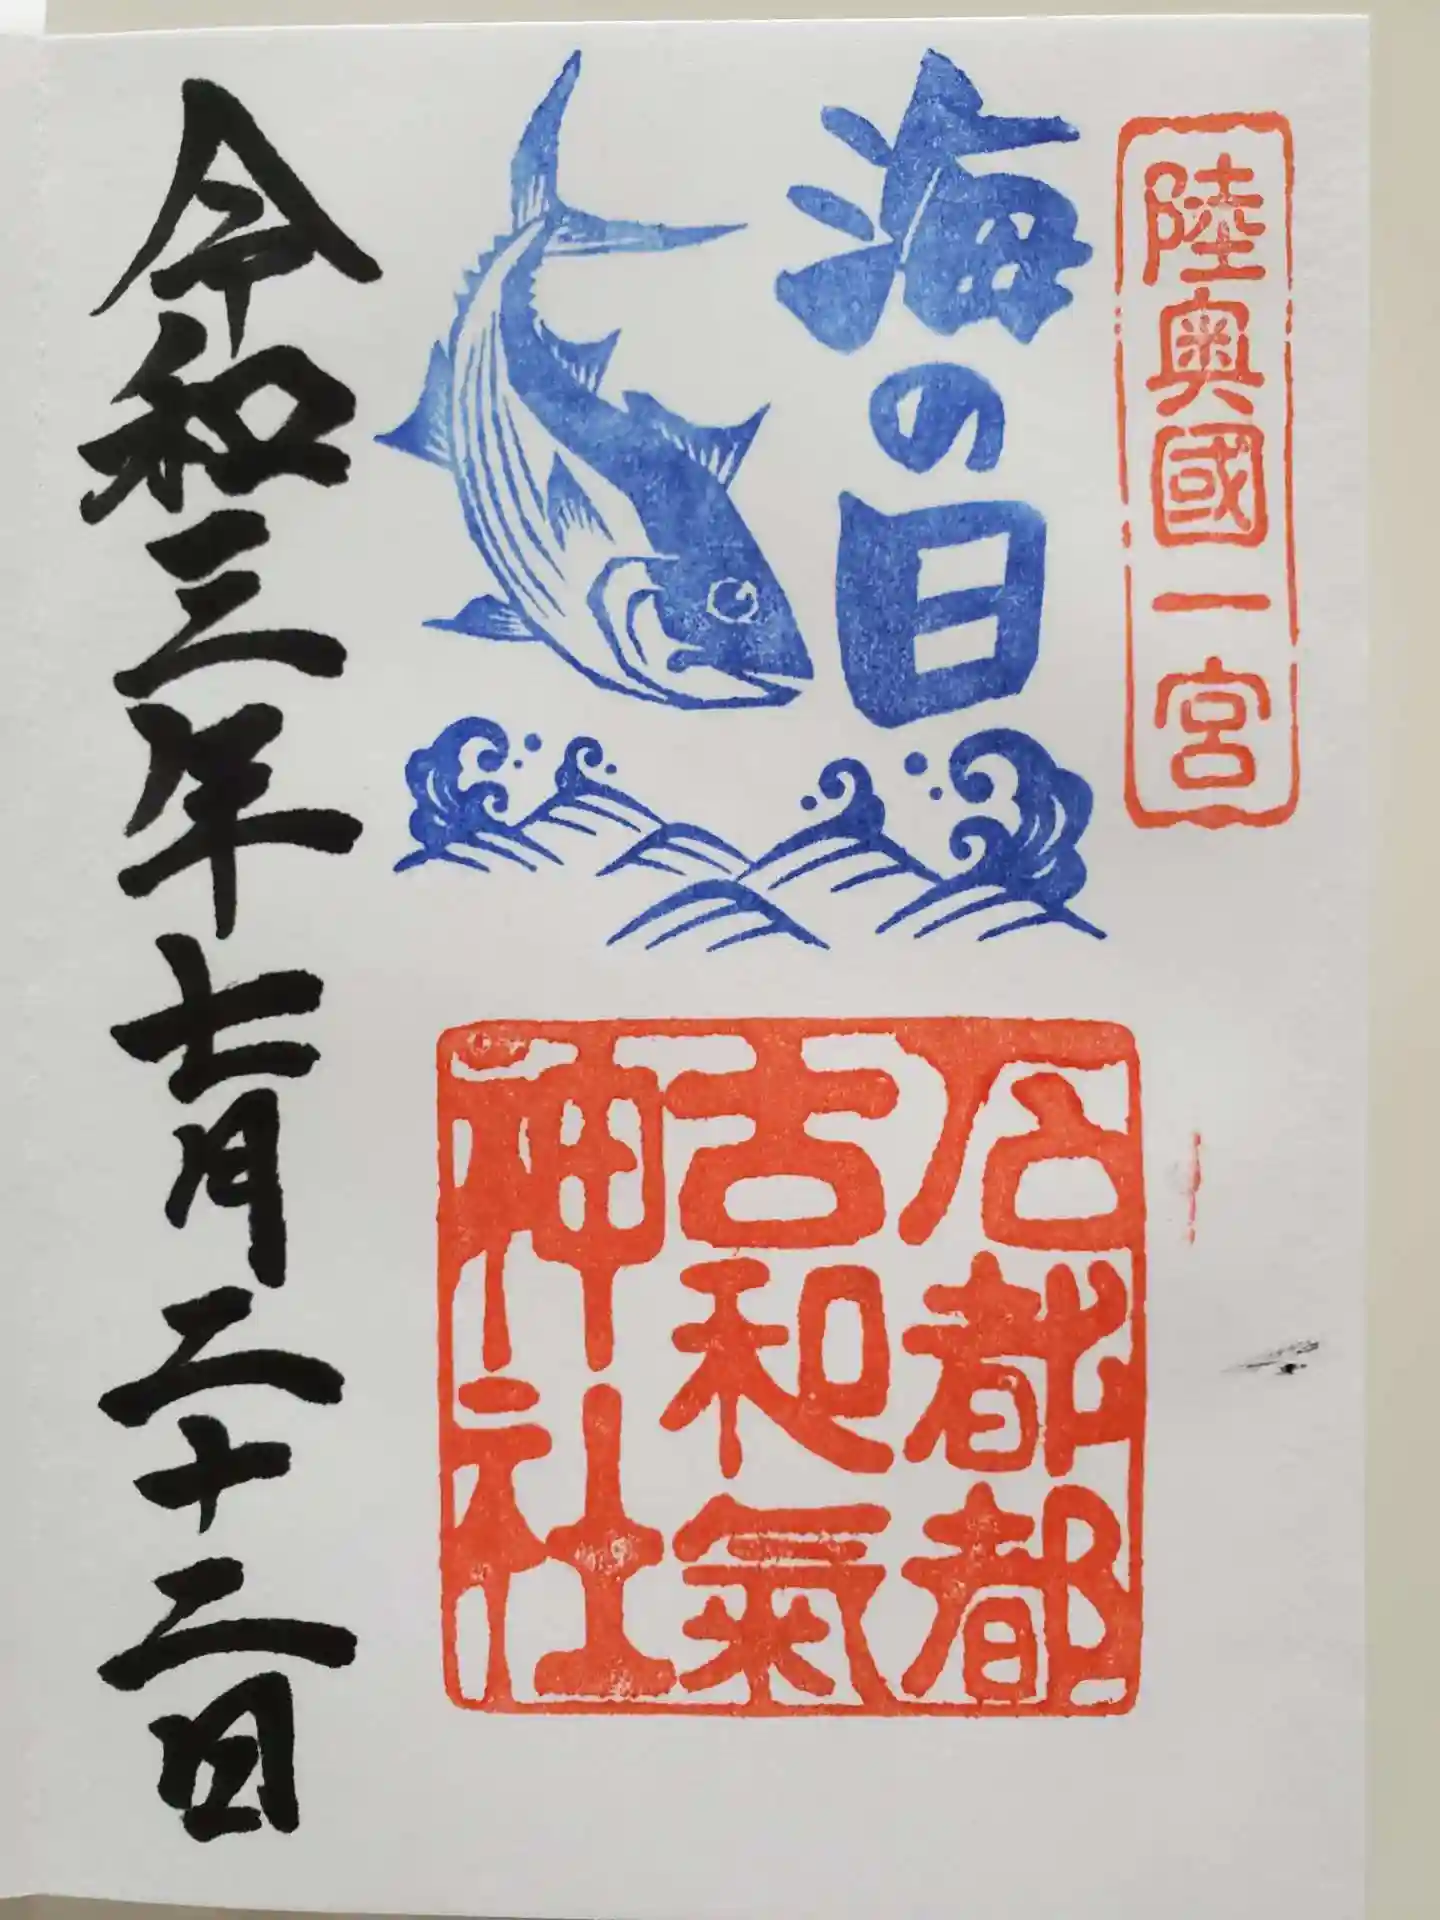 陸奥國一宮
海の日
石都都
古和氣
神社
令和三年七月二十二日